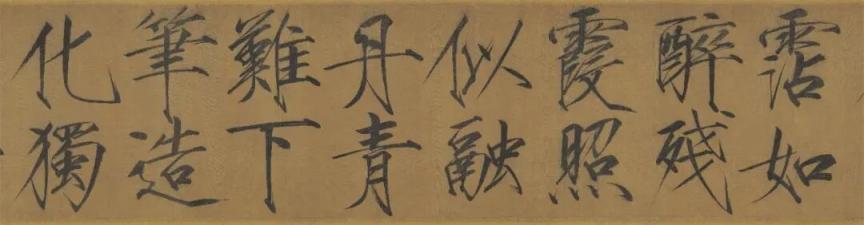 霑如
醉殘
霞照
似融
丹青
難下
筆造
化獨